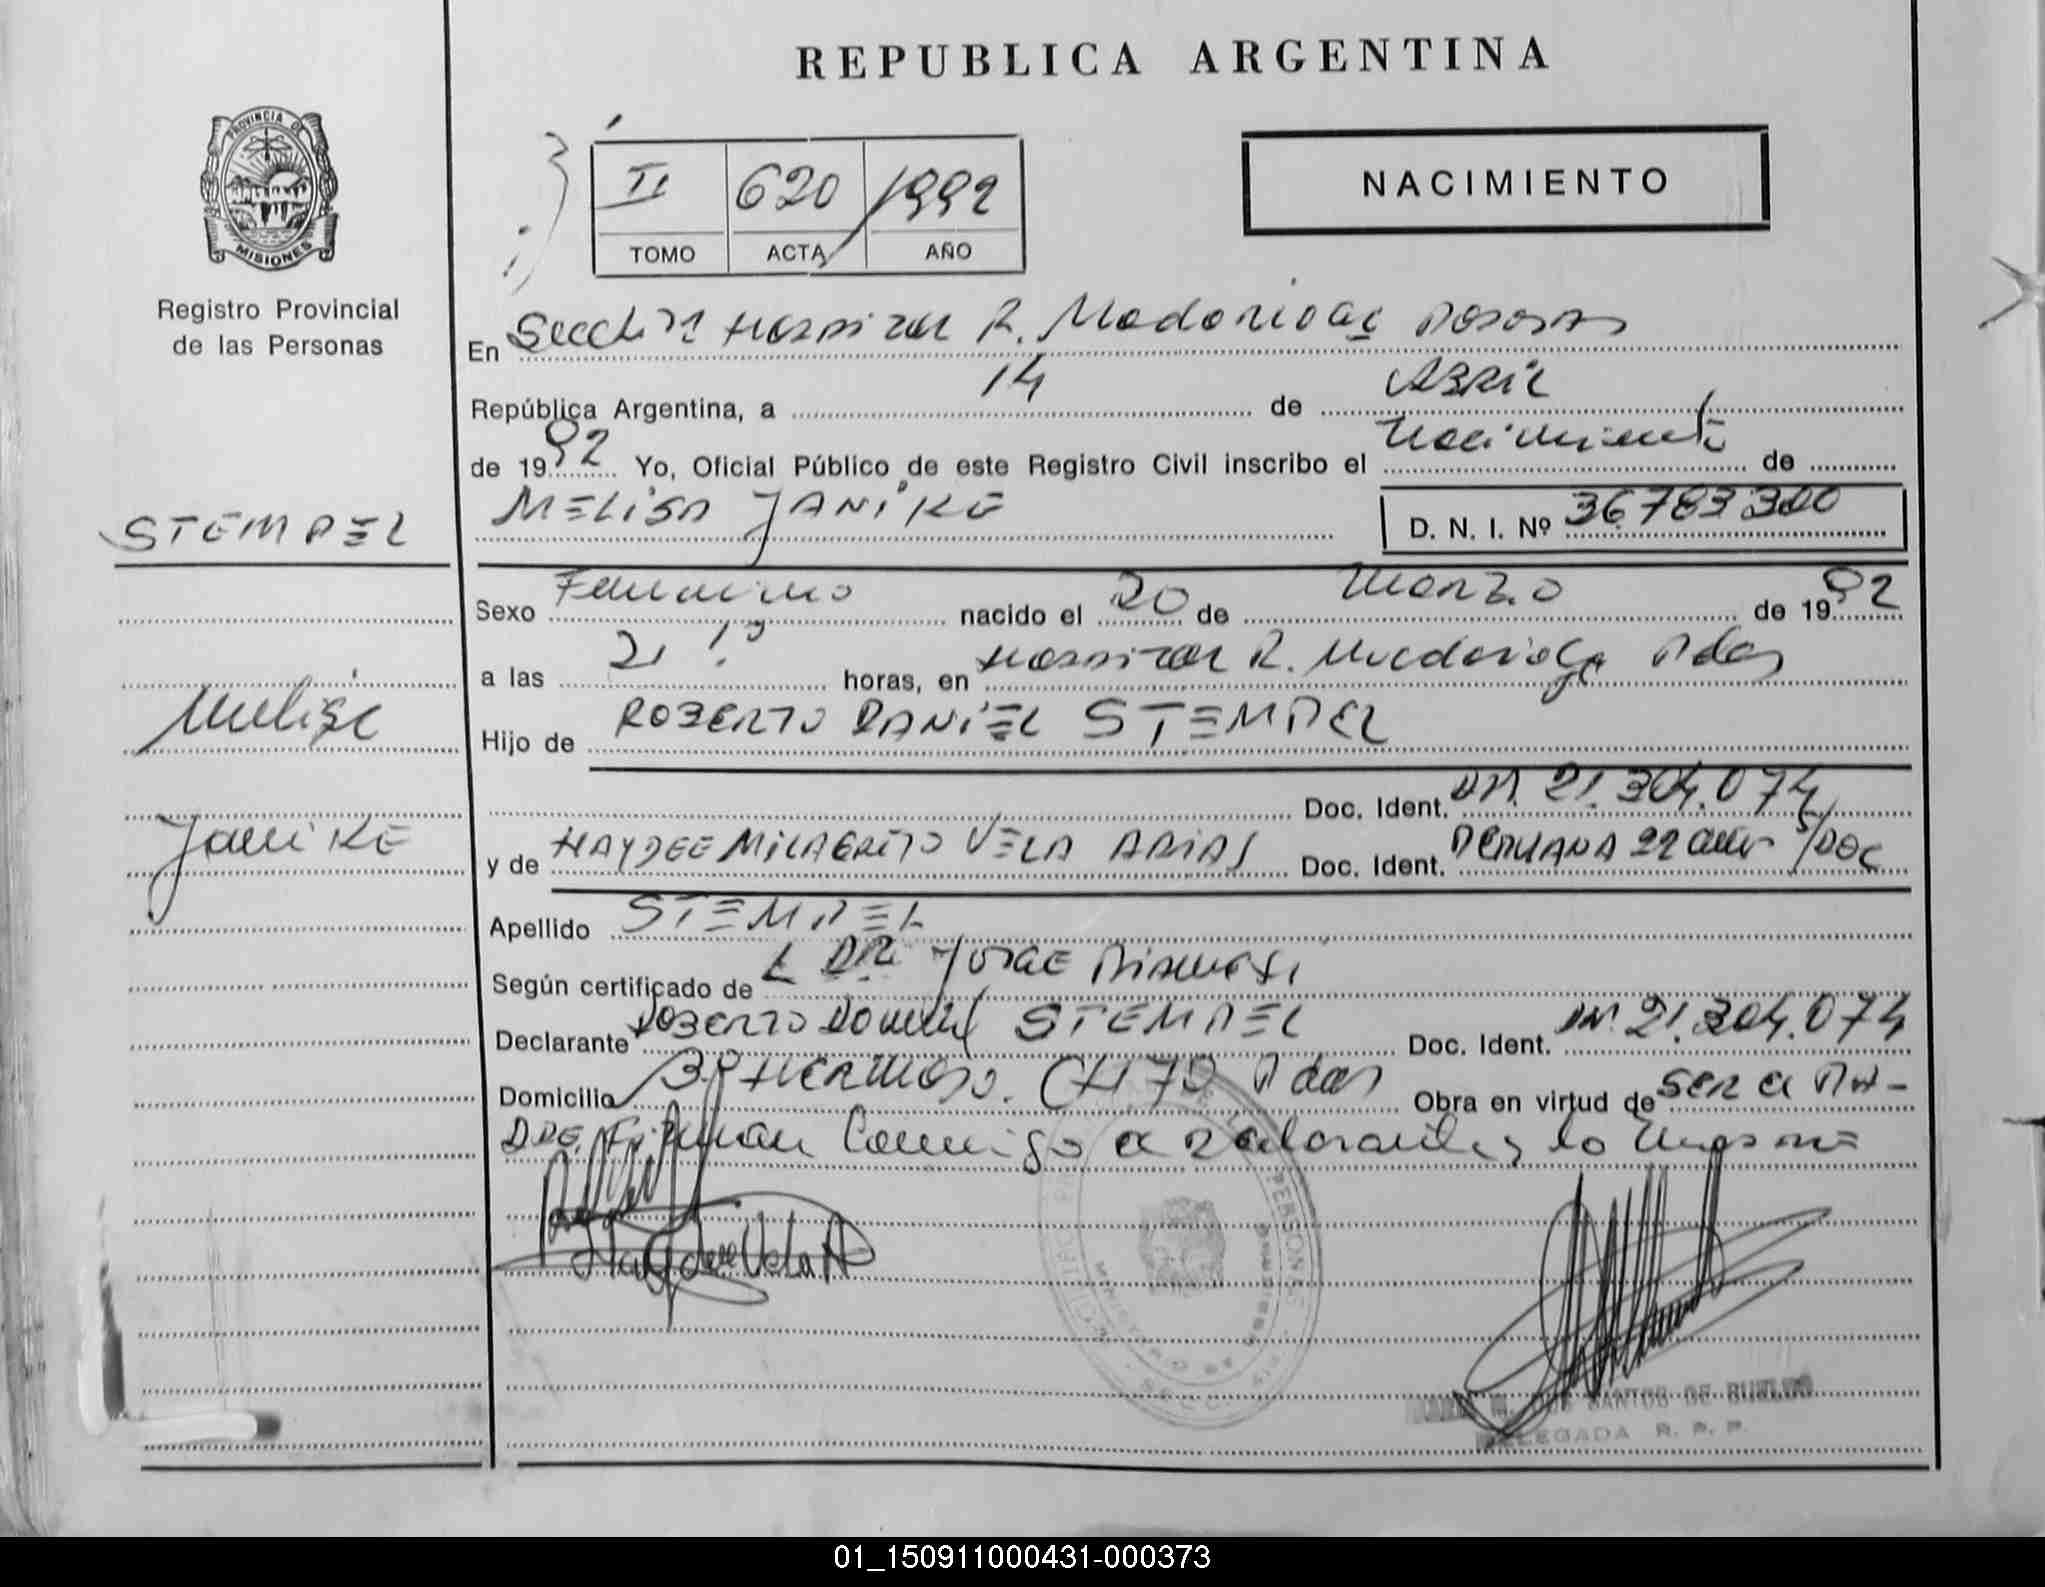 REPUBLICA ARGENTINA
PROVINCIA DE
MISIONES
Registro Provincial
de las Personas
II 620 1992
TOMO ACTA AÑO
NACIMIENTO
En Secc Hospital R. Madariaga Posadas
República Argentina, a 14 de ABRIL
de 1992 Yo, Oficial Público de este Registro Civil inscribo el Nacimiento de
MELISA JANIKE D. N. I. Nº 36783300
STEMPEL
Melisa
JaniKE
Sexo Femenino nacido el 20 de Marzo de 1992
a las 21 horas, en Hospital R. Madariaga Pdas
Hijo de ROBERTO DANIEL STEMPEL
Doc. Ident. DNI. 21.304.074
y de HAYDEE MILAGRITO VELA ARIAS Doc. Ident. PERUANA 22 años S/DOC
Apellido STEMPEL
Según certificado de L DR JORGE
Declarante ROBERTO Daniel STEMPEL Doc. Ident. DNI. 21.304.074
Domicilio Bº HERMOSO. CH 70 Pdas Obra en virtud de SER el PA-
DRE. Firman Conmigo el Declarante y la
Haydee Vela A
PERSONAS
DOS SANTOS DE
DELEGADA R. P. P.
01_150911000431-000373